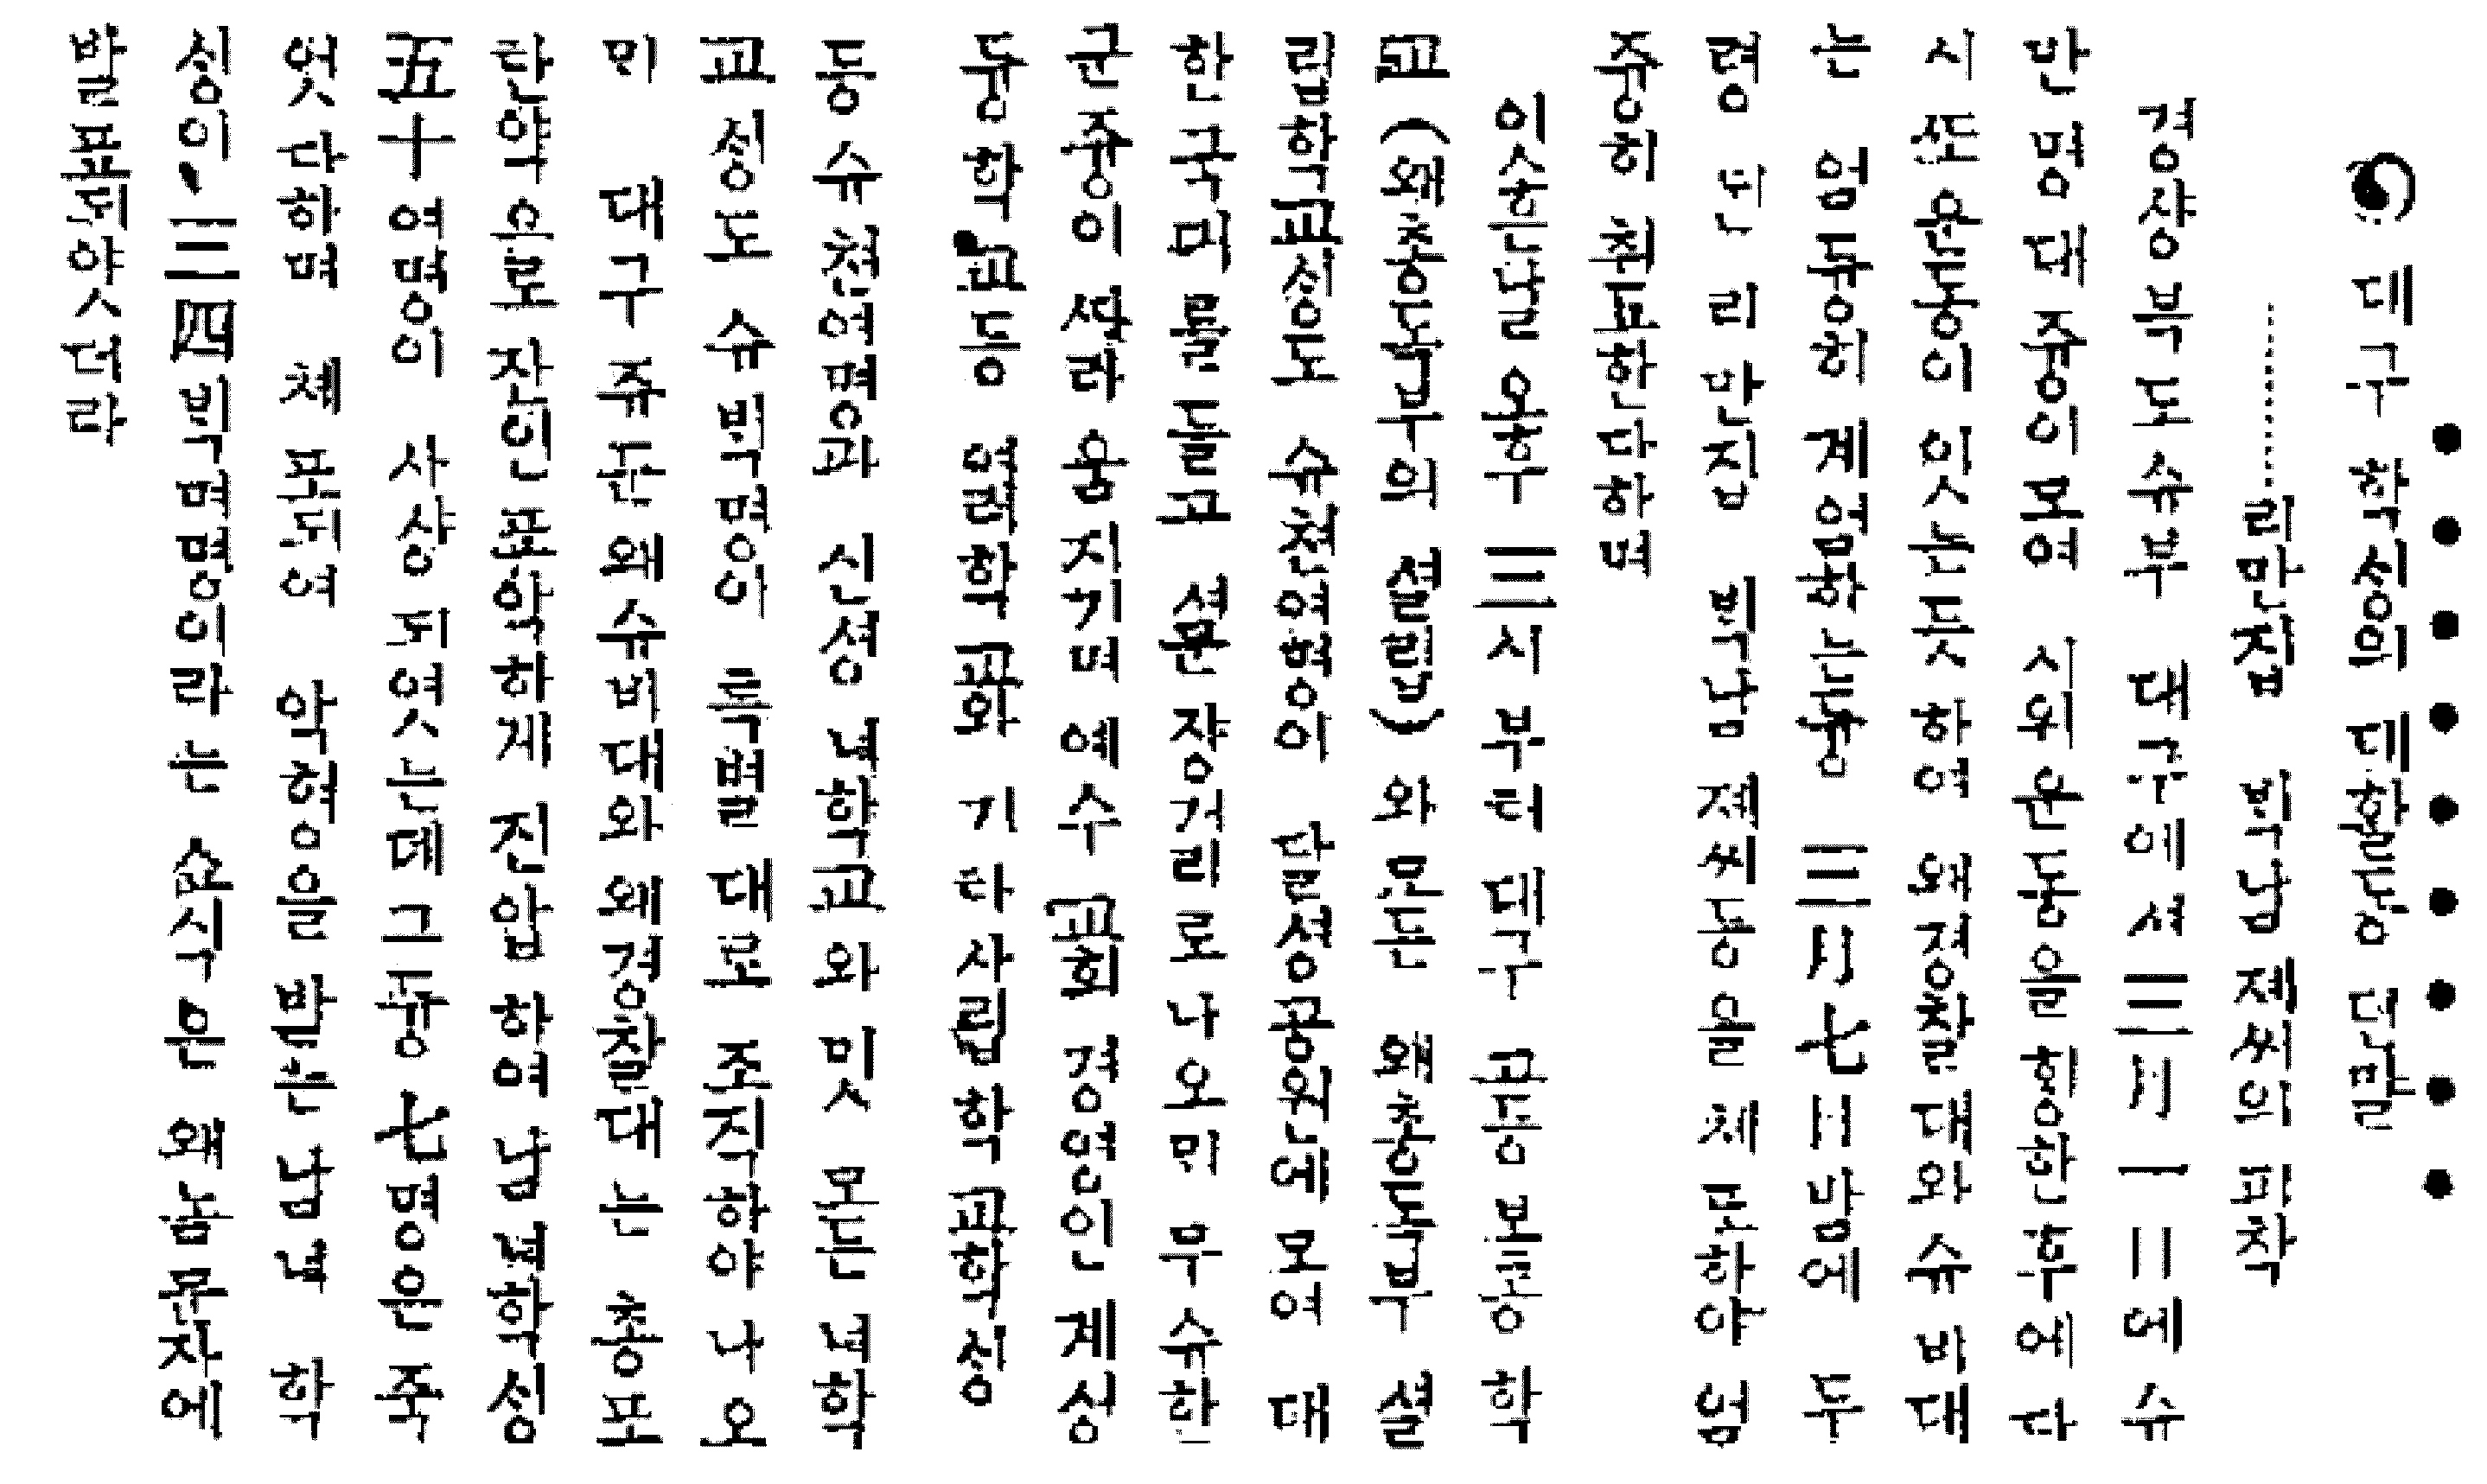 대구 학싱의 대활동 뎐말
리만집 박남 졔씨의 피착
경상북도 슈부 대구에셔 三月 一日에 슈
만명 대즁이 모여 시위운동을 힝한 후에 란
시 또 운동이 잇는듯하여 왜 경찰대와 슈비대
는 엄즁히 계엄하는즁 三月七日 밤에 두
령 되 리만집 박남 졔씨등을 체포하야 엄
즁히 취됴한다하며
이 츤날 오후 三시부터 대구 고등 보통 학
교 (왜 총독부의 셜립) 와 모든 왜 총독부 셜
립 학교 싱도 슈쳔여명이 달셩 공원에 모여 대
한국긔를 들고 셔문 장거리로 나오미 무슈한
군즁이 짜라 움지기며 예수교회 경영인 계셩
즁학교등 여러 학교와 기타 사립 학교 학싱
등 슈쳔여명과 신셩 녀학교와 밋 모든 녀학
교 싱도 슈빅명이 특별 대로 죠직하야 나오
미 대구 쥬둔 왜 슈비대와 왜 경찰대는 총포
란약으로 잔인 포악하게 진압하여 남녀 학싱
五十여명이 사상되엿는데 그즁 七명은 죽
엇다하며 체포되여 악형을 밧는 남녀 학
싱이 三四빅여명이라는 쇼식은 왜놈 문자에
발포되얏더라